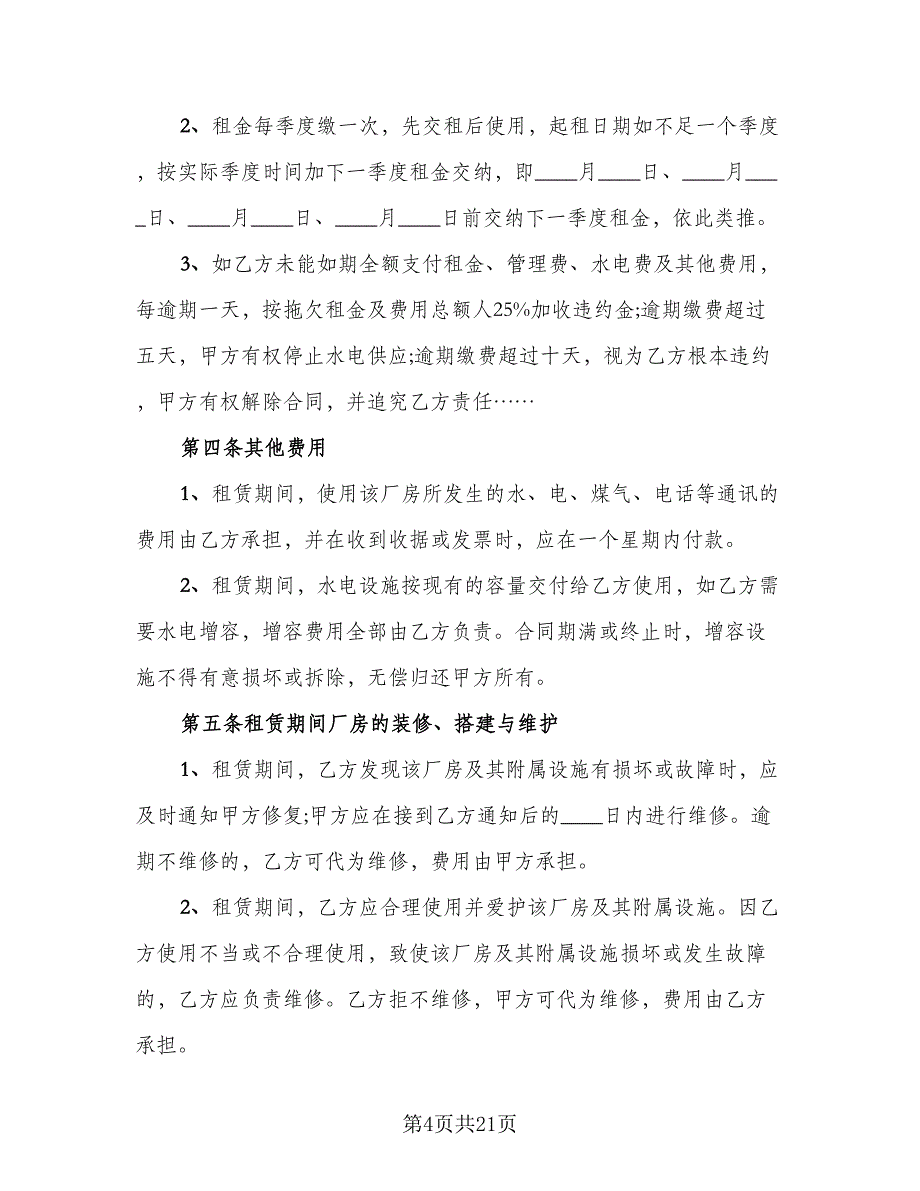 2、租金每季度缴一次，先交租后使用，起租日期如不足一个季度
，按实际季度时间加下一季度租金交纳，即____月____日、____月___
_日、____月____日、____月____日前交纳下一季度租金，依此类推。
3、如乙方未能如期全额支付租金、管理费、水电费及其他费用，
每逾期一天，按拖欠租金及费用总额人25%加收违约金;逾期缴费超过
五天，甲方有权停止水电供应;逾期缴费超过十天，视为乙方根本违约
，甲方有权解除合同，并追究乙方责任……
第四条其他费用
1、租赁期间，使用该厂房所发生的水、电、煤气、电话等通讯的
费用由乙方承担，并在收到收据或发票时，应在一个星期内付款。
2、租赁期间，水电设施按现有的容量交付给乙方使用，如乙方需
要水电增容，增容费用全部由乙方负责。合同期满或终止时，增容设
施不得有意损坏或拆除，无偿归还甲方所有。
第五条租赁期间厂房的装修、搭建与维护
1、租赁期间，乙方发现该厂房及其附属设施有损坏或故障时，应
及时通知甲方修复;甲方应在接到乙方通知后的____日内进行维修。逾
期不维修的，乙方可代为维修，费用由甲方承担。
2、租赁期间，乙方应合理使用并爱护该厂房及其附属设施。因乙
方使用不当或不合理使用，致使该厂房及其附属设施损坏或发生故障
的，乙方应负责维修。乙方拒不维修，甲方可代为维修，费用由乙方
承担。
第4页共21页